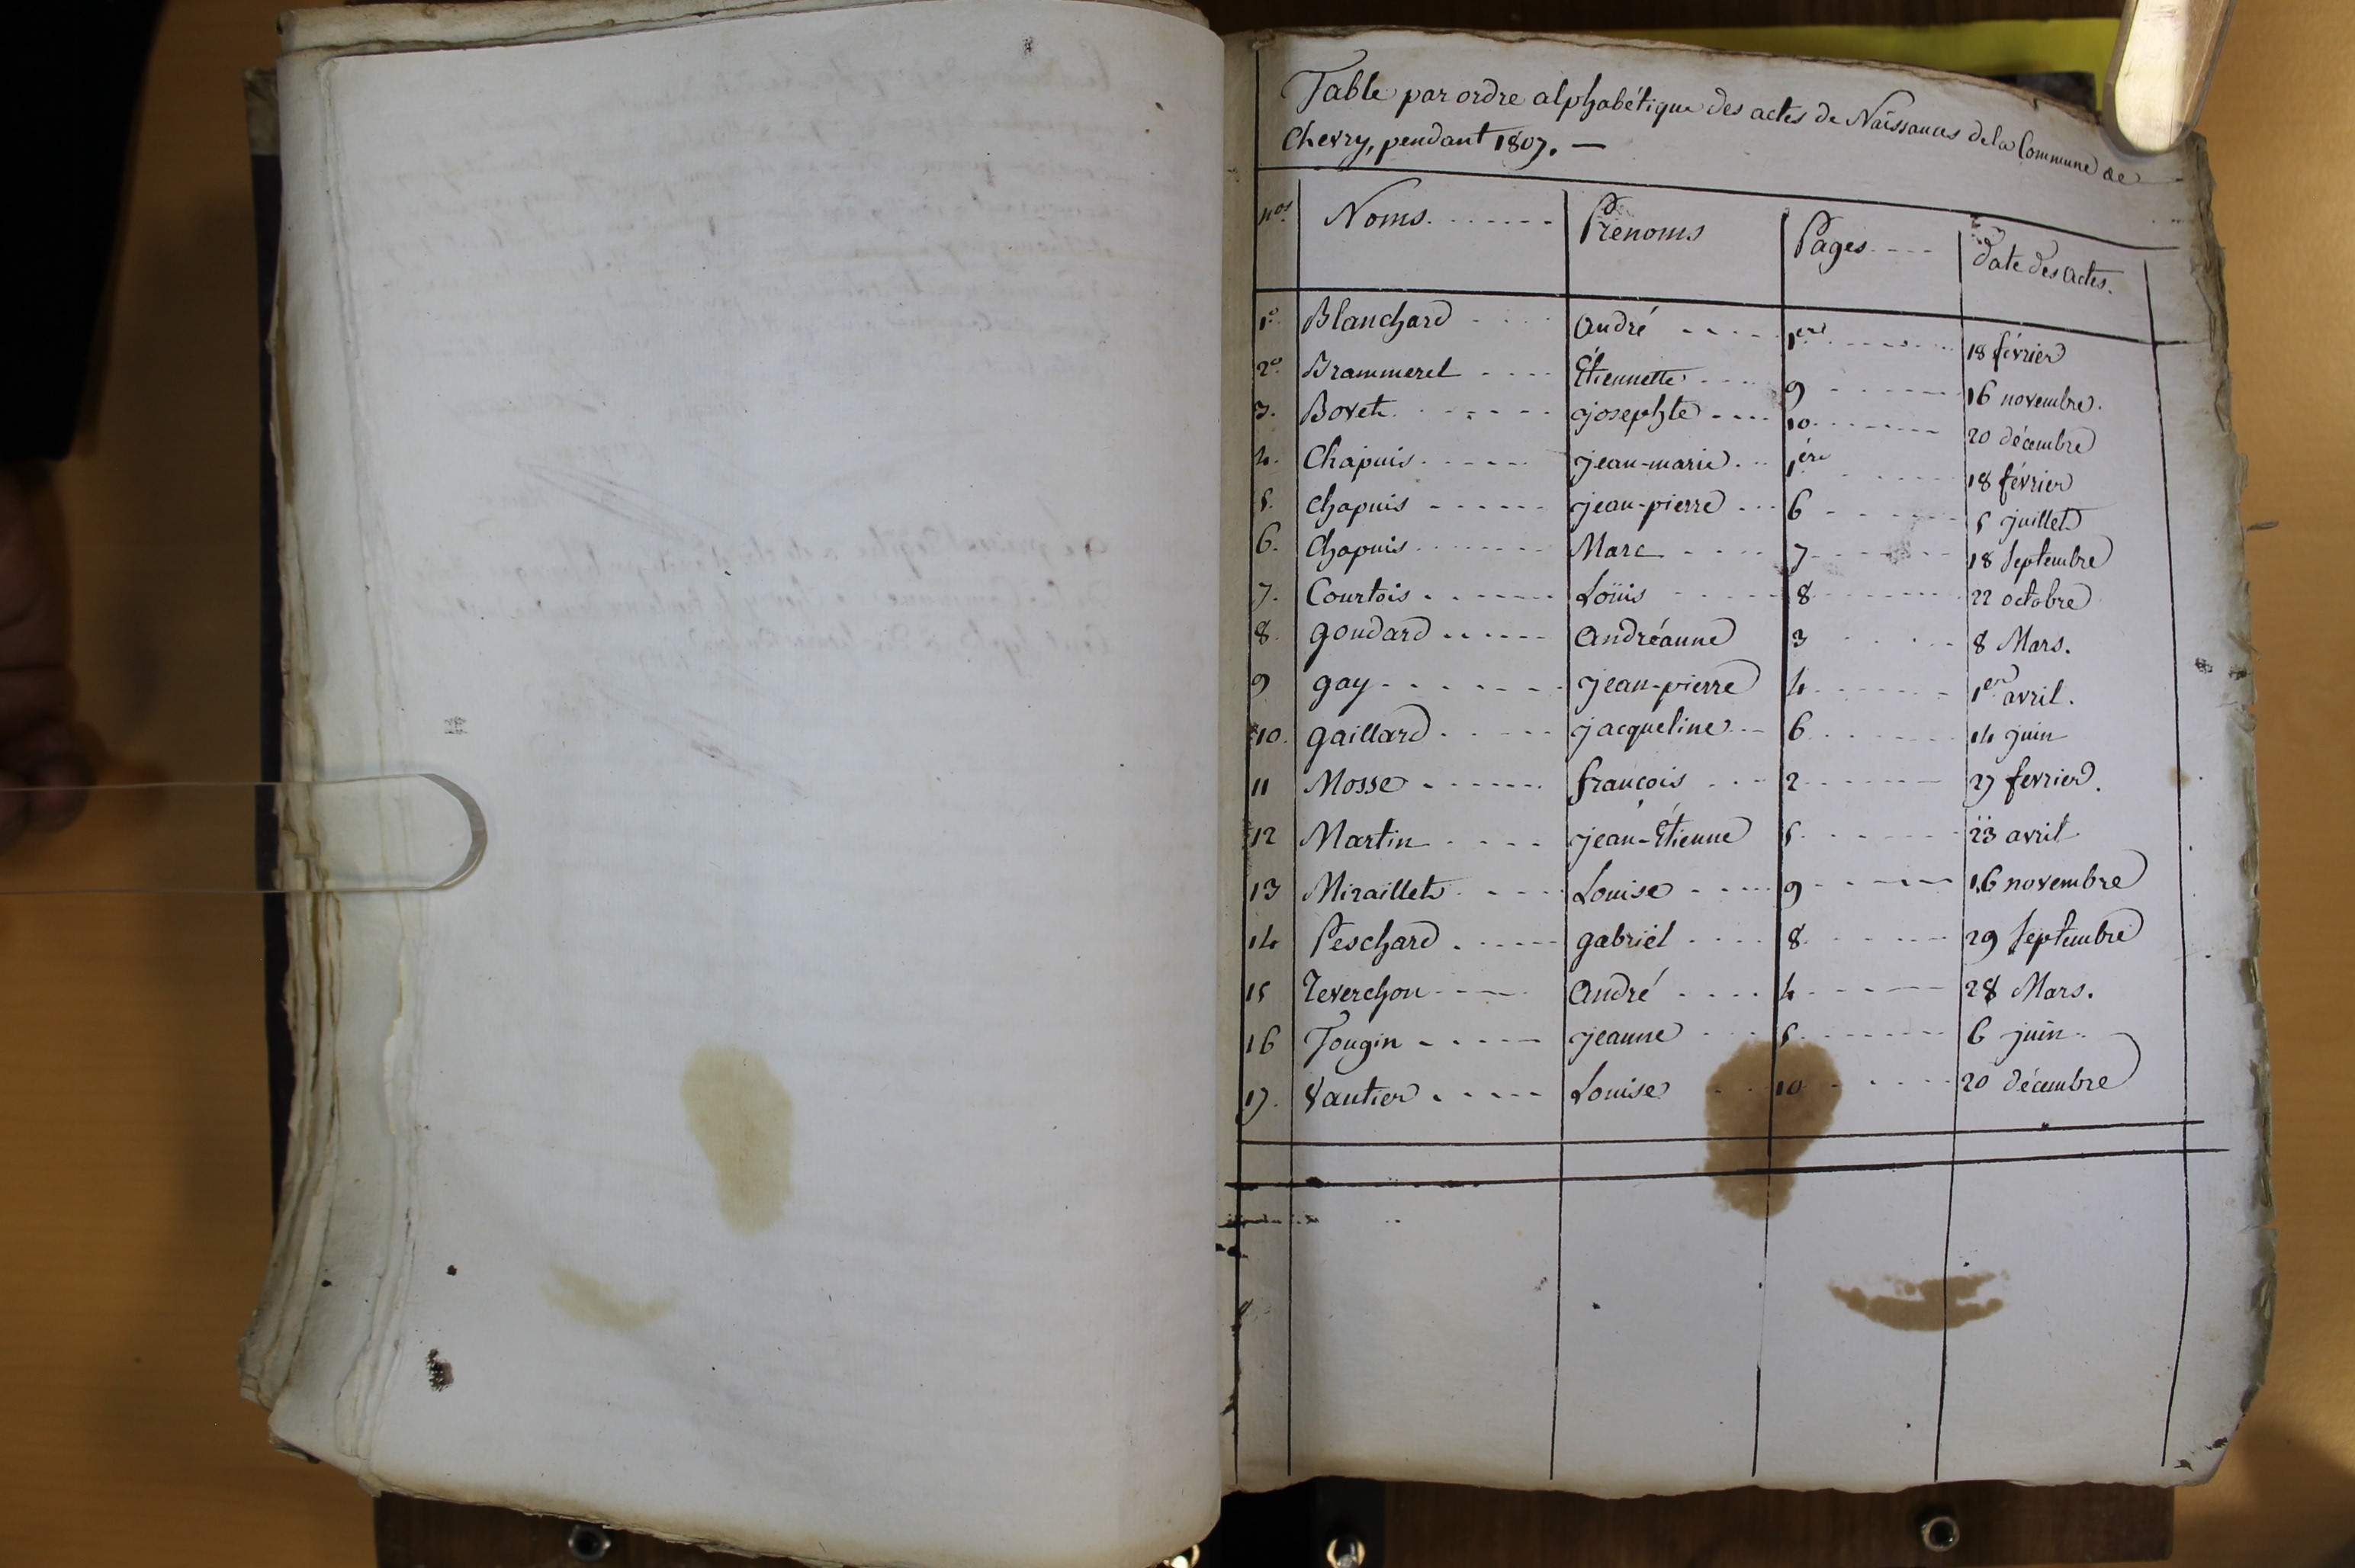 Table par ordre alphabétique des actes de Naissances de la Commune de
Chevry, pendant 1807. —
nos Noms Prénoms Pages date des actes.
1º Blanchard André 1ere 18 février
2º Brammerel Étiennette 9 16 novembre.
3. Bovet josephte 10 20 décembre
4. Chapuis jean-marie 1ére 18 février
5. Chapuis jean-pierre 6 5 juillet
6. Chapuis Marc 7 18 Septembre
7. Courtois Loüis 8 22 octobre
8. goudard andréanne 3 8 Mars.
9 gay jean-pierre 4 1er avril.
10. gaillard jacqueline 6 14 juin
11 Mosse françois 2 27 fevrier.
12 Martin jean-Étienne 5 23 avril
13 Miraillet Louise 9 16 novembre
14 Peschard gabriel 8 29 Septembre
15 Teverchon André 4 28 Mars.
16 Tougin jeanne 5 6 juin
17. Vautier Louise 10 20 décembre